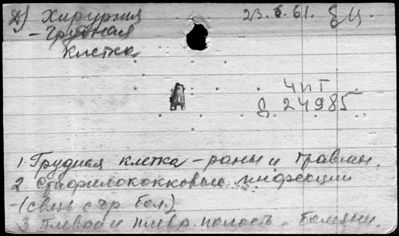 Д) Хирургия 23.6.61.
- Грудная
клетка
Чит
24985
1. Грудная клетка - раны и травмы.
2. Стафилококковые инфекции
-(связь с др. бол.)
3. Плевра и плевр. полость - болезни.